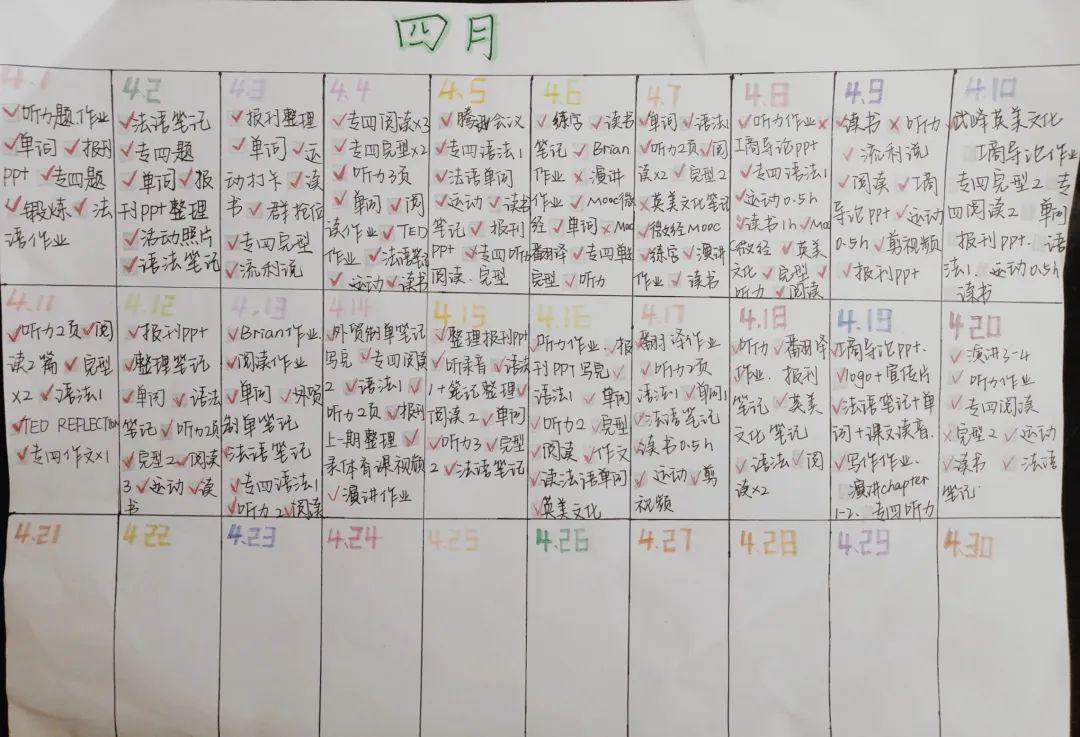 四月
4.1
✓听力题作业
✓单词 ✓报刊
ppt ✓专四题
✓锻炼 ✓法
语作业
4.2
✓法语笔记
✓专四题
✓单词 ✓报
刊ppt整理
✓活动照片
✓语法笔记
4.3
✓报刊整理
✓单词 ✓运
动打卡 ✓读
书 ✓群抢位
✓专四完型
✓流利说
4.4
✓专四阅读×3
✓专四完型×2
✓听力3页
✓单词 ✓阅
读作业 ✓TED
作业 ✓法语笔记
✓运动 ✓读书
4.5
✓腾讯会议
✓专四语法1
✓法语单词
✓运动 ✓读书
笔记 ✓报刊
PPT ✓专四听力
阅读、完型
4.6
✓练字 ✓读书
笔记 ✓Brian
作业 ×演讲
作业 ✓Mooc微
经 ✓单词 ×Mooc
翻译 ✓专四单
完型 ✓听力
4.7
✓单词 ✓语法1
✓听力2页 ✓阅
读×2 ✓完型2
×英美文化笔记
✓微经MOOC
✓练字 ✓演讲
作业 ✓读书
4.8
✓听力作业 ×
工商导论ppt
✓专四语法1
✓运动0.5h
✓读书1h ✓Mooc
微经 ✓英美
文化 ✓完型 ✓
听力 ✓阅读
4.9
✓读书 ×听力
✓流利说
✓阅读 ✓工商
导论PPT ✓运动
0.5h ✓剪视频
✓报刊ppt
4.10
武峰英美文化
工商导论作业
专四完型2 专
四阅读2 单词
报刊PPT. 语
法1. 运动0.5h
读书
4.11
✓听力2页 ✓阅
读2篇 ✓完型
×2 ✓语法1
✓TED REFLECTION
✓专四作文×1
4.12
✓报刊PPt
✓整理笔记
✓单词 ✓语法
笔记 ✓听力2页
✓完型2 ✓阅读
3 ✓运动 ✓读
书
4.13
✓Brian作业
✓阅读作业
✓单词 ✓外贸
制单笔记
✓法语笔记
✓专四语法1
✓听力2 ✓阅读
4.14
外贸制单笔记
写完 ✓专四阅读
2 ✓语法1 ✓
听力2页 ✓报刊
上一期整理 ✓
录体育课视频
✓演讲作业
4.15
✓整理报刊PPt
✓听录音 ✓语法
1+笔记整理 ✓
阅读2 ✓单词
✓听力3 ✓完型
2 ✓法语笔记
4.16
✓听力作业. ✓报
刊PPT写完 ✓
语法1 ✓单词
✓听力2 ✓完型
✓阅读 ✓作文
✓读法语单词
✓英美文化
4.17
翻译作业
✓听力2页
语法1 ✓单词1
✓法语笔记
✓读书0.5h
✓运动 ✓剪
视频
4.18
✓听力 ✓翻译
作业. 报刊
笔记 ✓英美
文化笔记
✓语法 ✓阅
读×2
4.19
工商导论PPT.
✓logo+宣传片
✓法语笔记+单
词+课文读音.
✓写作作业.
演讲chapter
1-2. 专四听力
4.20
✓演讲3-4
✓听力作业
✓专四阅读
×完型2 ✓运动
✓读书 ✓法语
笔记
4.21
4.22
4.23
4.24
4.25
4.26
4.27
4.28
4.29
4.30